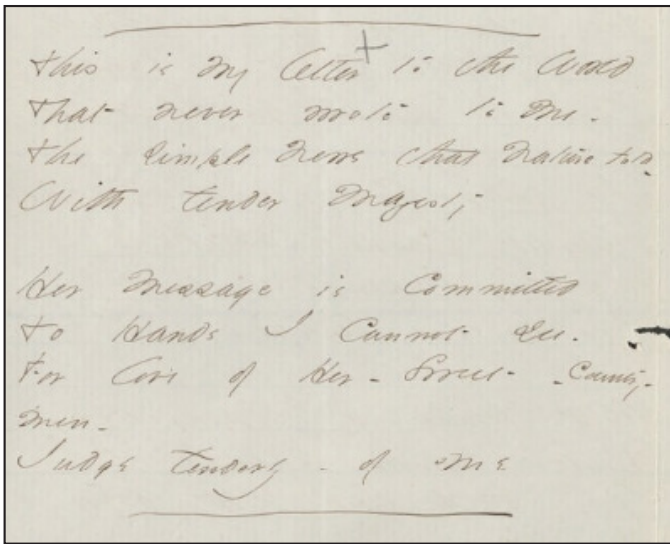 This is my letter to the World
That never wrote to Me -
The simple News that Nature told -
With tender Majesty
Her Message is Committed
To Hands I Cannot See -
For love of Her - Sweet - Country -
men -
Judge tenderly - of Me